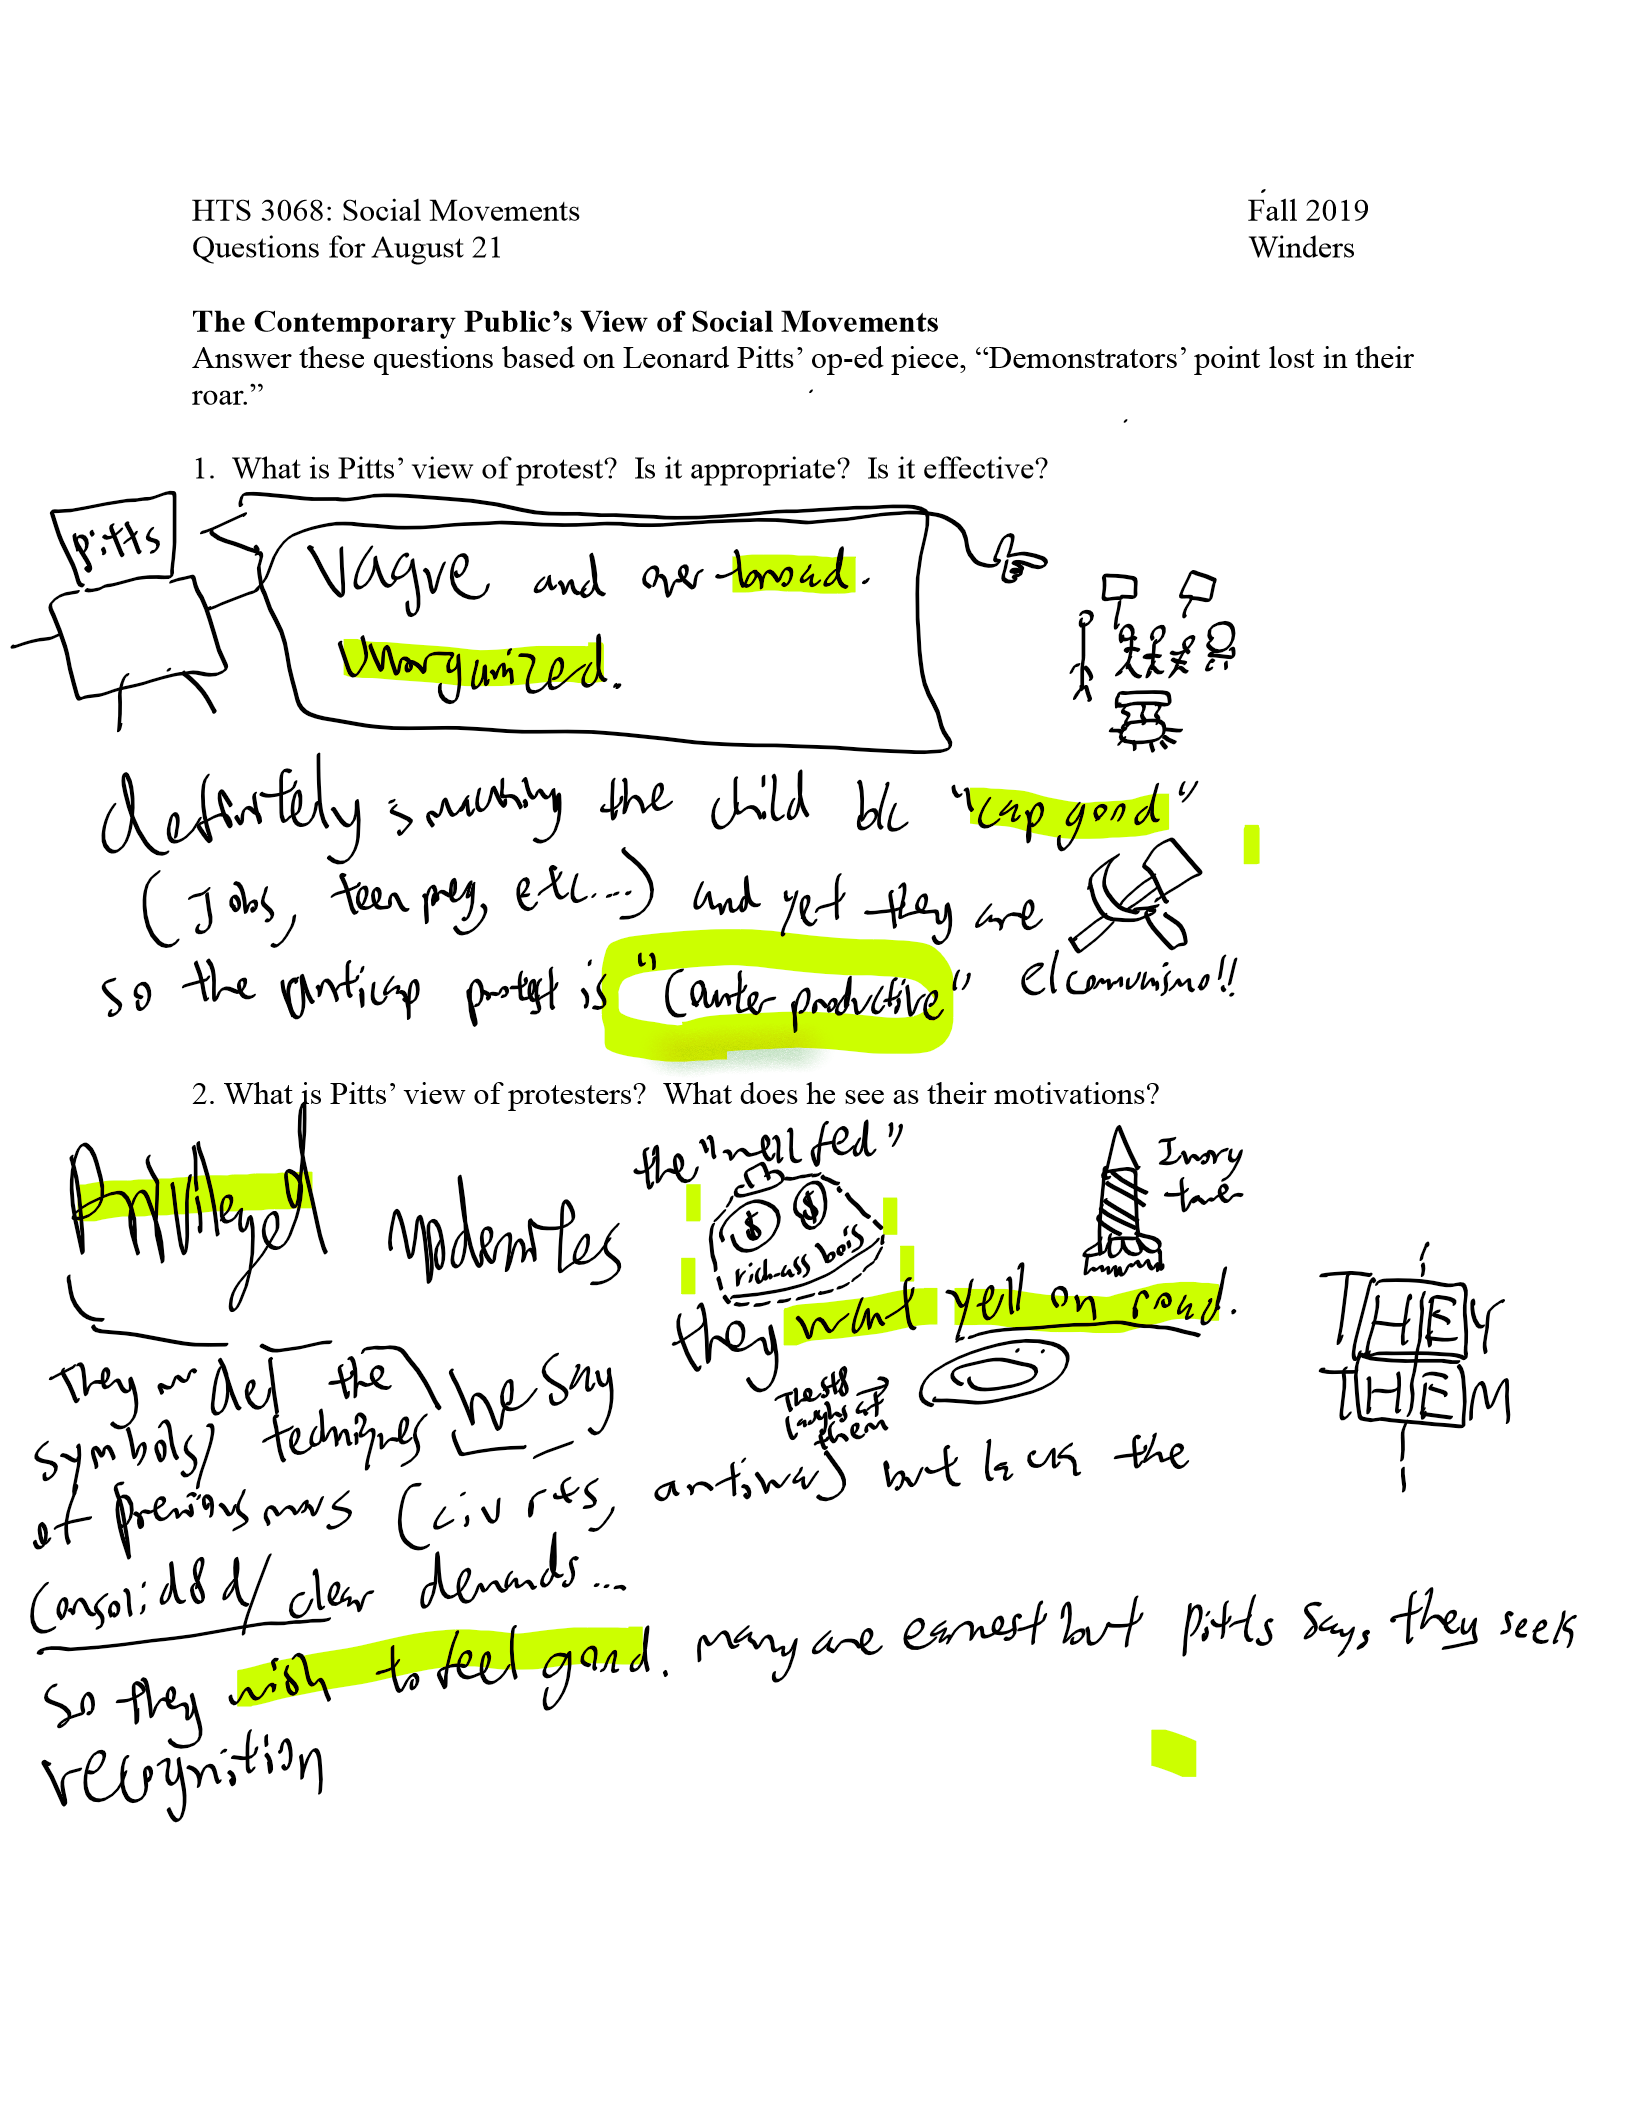 HTS 3068: Social Movements Fall 2019
Questions for August 21 Winders
The Contemporary Public’s View of Social Movements
Answer these questions based on Leonard Pitts’ op-ed piece, “Demonstrators’ point lost in their
roar.”
1. What is Pitts’ view of protest? Is it appropriate? Is it effective?
Pitts
Vague and over broad.
Unorganized.
definitely smacking the child b/c "cap good"
(Jobs, teen preg, etc...) and yet they are
so the anticap protest is "Counter productive" el comunismo!!
2. What is Pitts’ view of protesters? What does he see as their motivations?
Privileged
the "well fed"
$ $
rich-ass bois
Ivory
tower
they want yell on road.
The st8
laughs at
them
THEY
THEM
They def the he say
symbols/ techniques
of previous movs (civ rts, antiwar) but lack the
Consolid8d/clear demands...
so they wish to feel good. many are earnest but pitts says they seek
recognition